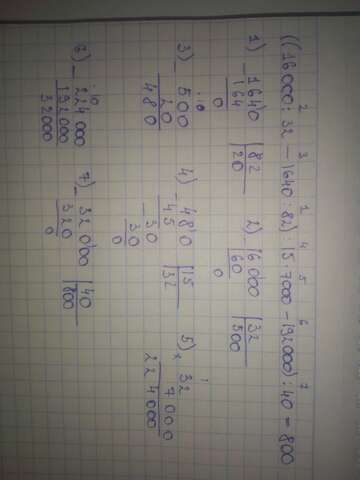 2 3 1 4 5 6 7
((16000:32 – 1640:82):15·7000 – 192000):40 = 800
1) – 1640 | 82
164 | 20
0
2) 16000 | 32
– 160 | 500
0
3) – 500
20
480
4) – 480 | 15
45 | 32
– 30
30
0
5) × 32
7000
224000
6) – 224000
192000
32000
7) – 32000 | 40
320 | 800
0